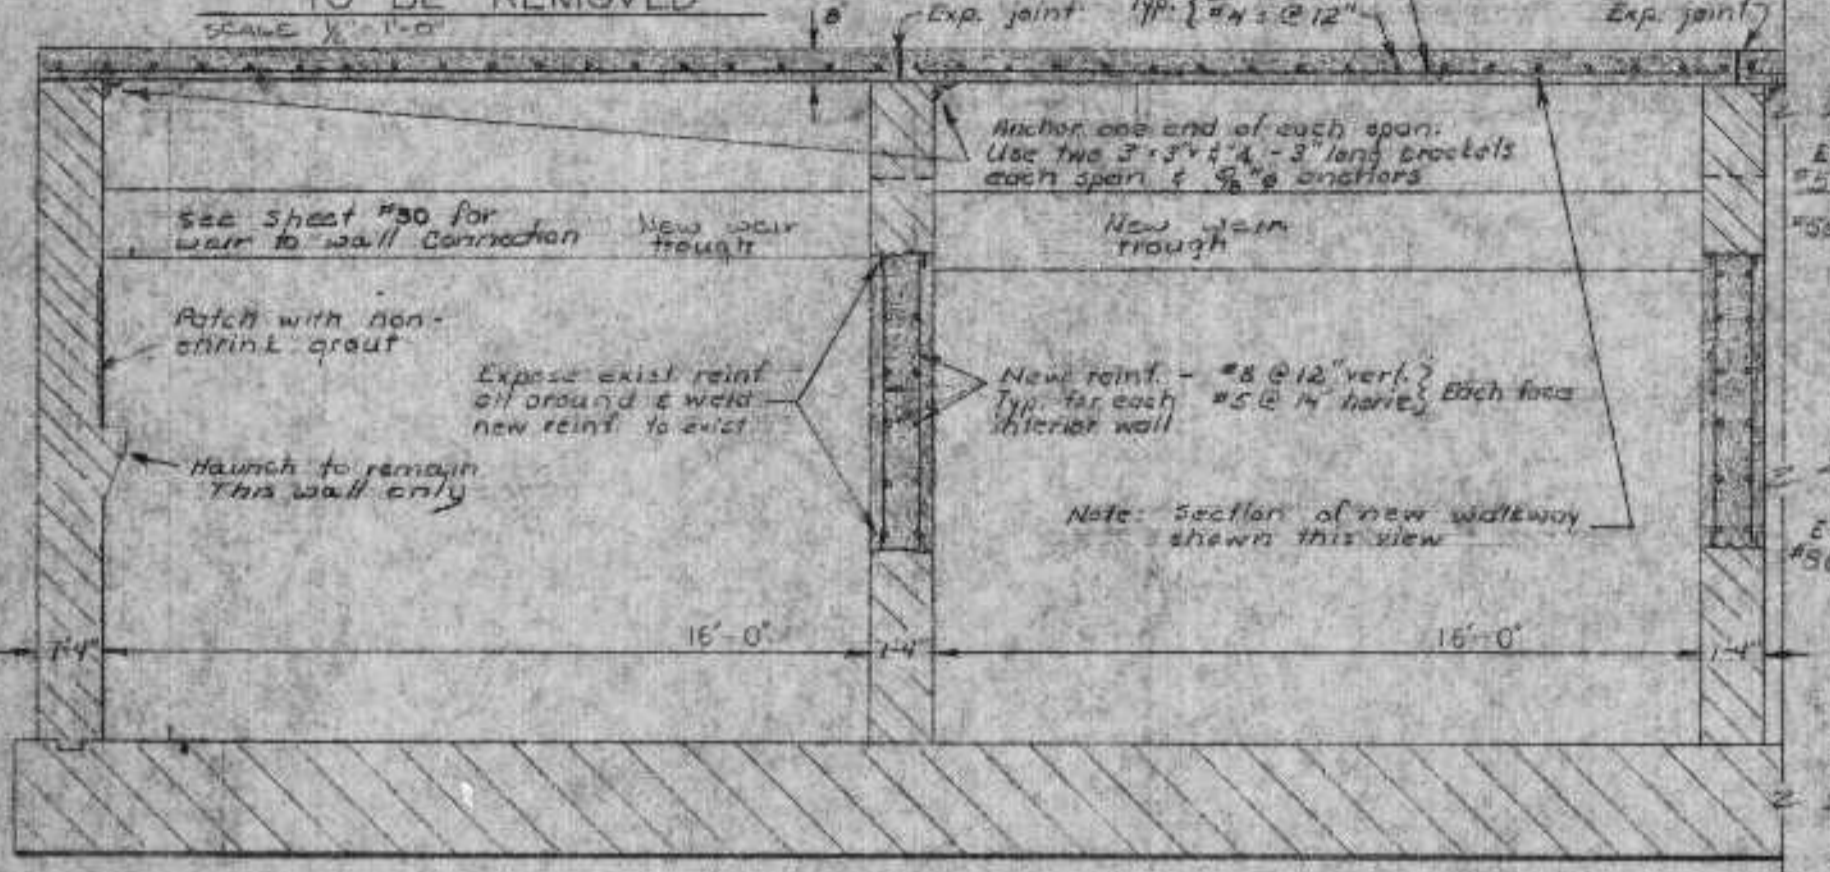 TO BE REMOVED
SCALE ½" = 1'-0"
8"
Exp. joint
Typ. { #4's @ 12"
Exp. joint
Anchor one end of each span.
Use two 3"×3"× - 3" long brackets
each span & 5/8"ø anchors
See sheet #30 for
weir to wall Connection
New weir
trough
New weir
trough
Patch with non-
shrink grout
Expose exist reinf
all around & weld
new reinf. to exist
New reinf. - #8 @ 12" vert. }
Typ. for each #5 @ 14" horiz } Each face
interior wall
Haunch to remain
This wall only
Note: Section of new walkway
shown this view
1'-4"
16'-0"
1'-4"
16'-0"
1'-4"